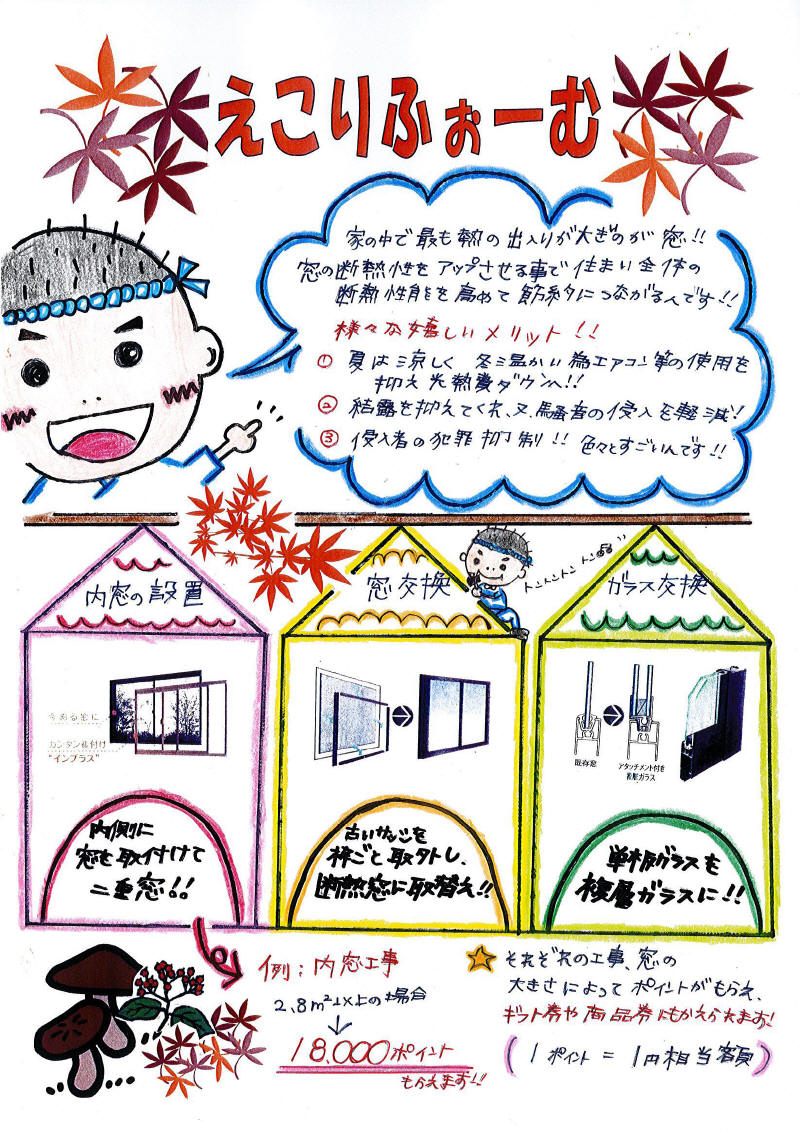 えこりふぉーむ
家の中で最も熱の出入りが大きのが窓!!
窓の断熱性をアップさせる事で住まい全体の
断熱性能を高めて節約につながるんです!!
様々な嬉しいメリット!!
① 夏は涼しく 冬は温かい為エアコン等の使用を
抑え光熱費ダウンへ!!
② 結露を抑えてくれ、又、騒音の侵入を軽減!
③ 侵入者の犯罪抑制!! 色々とすごいんです!!
トントントントン♪♪
内窓の設置
窓交換
ガラス交換
今ある窓に
カンタン取付け
"インプラス"
既存窓
アタッチメント付き
複層ガラス
内側に
窓を取付けて
二重窓!!
古いサッシを
枠ごと取外し、
断熱窓に取替え!!
単板ガラスを
複層ガラスに!!
例:内窓工事
2.8m²以上の場合
↓
18,000ポイント
もらえます!!
☆ それぞれの工事、窓の
大きさによってポイントがもらえ、
ギフト券や商品券にもかえられます!
(1ポイント=1円相当額)